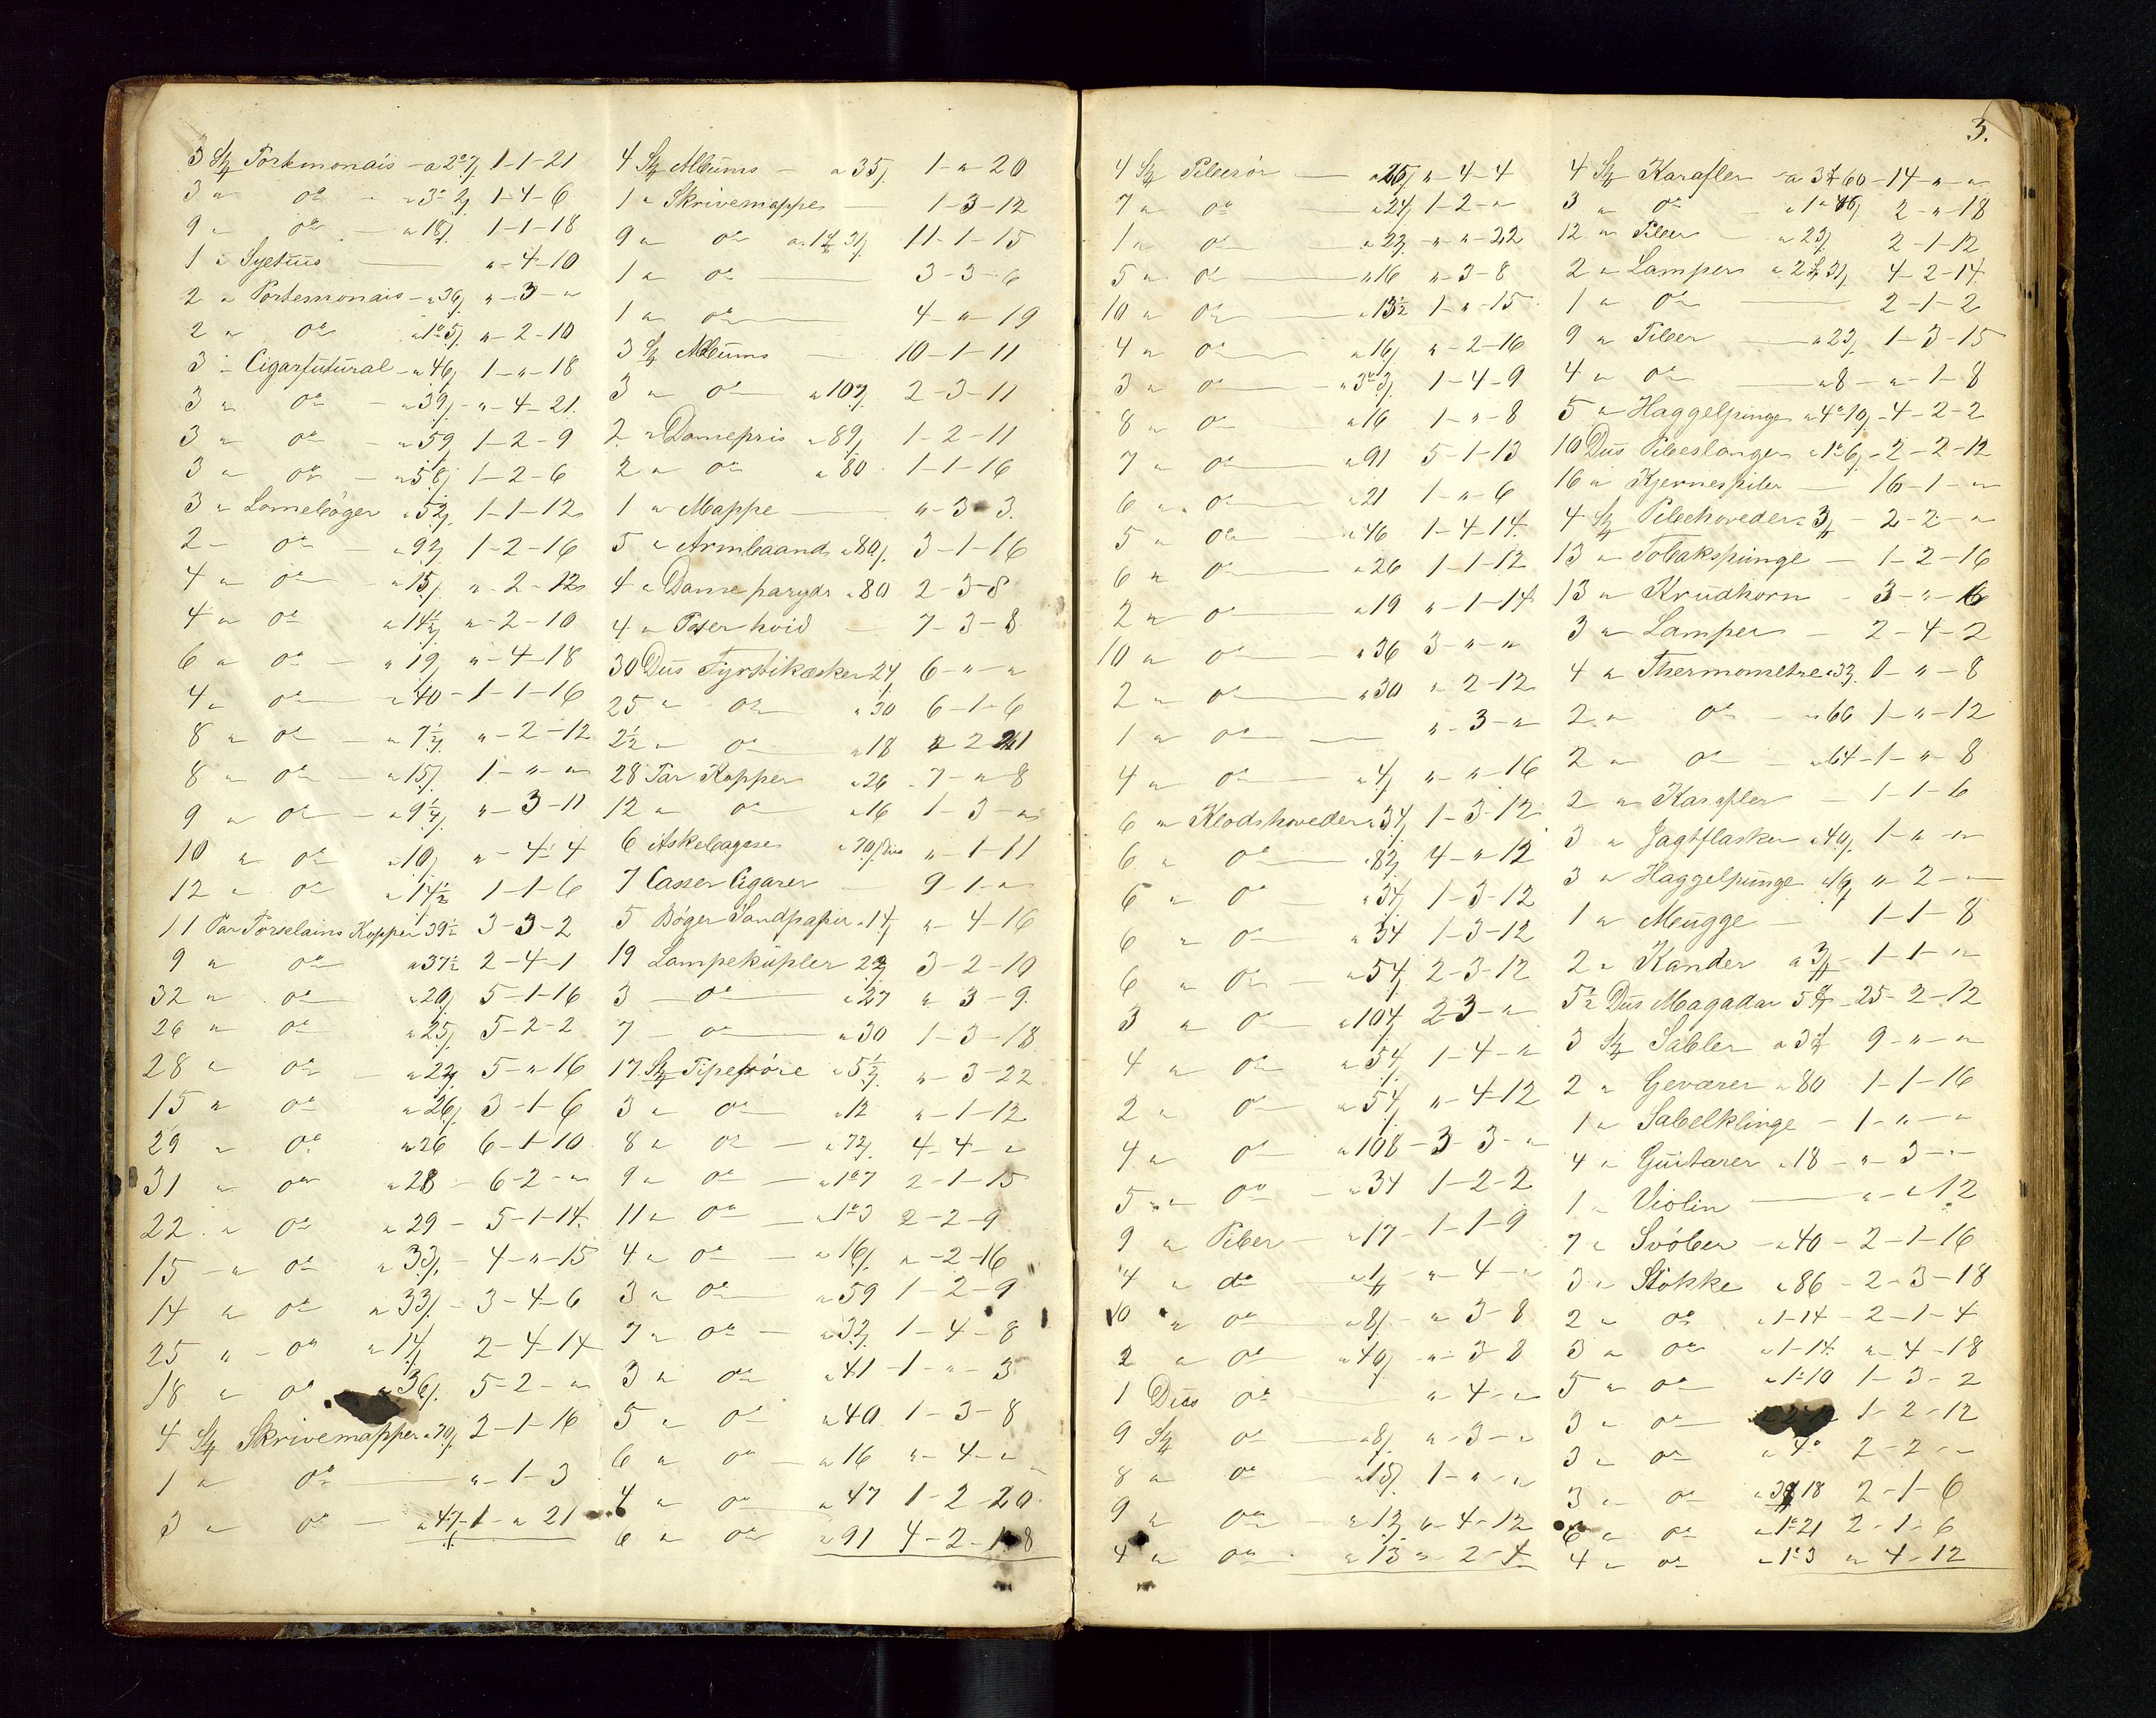 3 Stk Portmonais - a 2 - 7 1-1-21
3 " do - " 3-2 1-4-6
9 " do - a 18 1-1-18
1 " Syetuis "-4-10
2 " Portemonais - a 36 "-3-"
2 " do a 1-5 "-2-10
3 " Cigarfutural - a 46 1-"-18
3 " do - a 39 "-4-21
3 " do - a 59 1-2-9
3 " do - a 58 1-2-6
3 " Lomebøger a 52 1-1-12
2 " do - a 92 1-2-16
4 " do - a 15 "-2-12
4 " do a 14½ "-2-10
6 " do - a 19 "-4-18
4 " do a 40 - 1-1-16
8 " do - a 7½ "-2-12
8 " do - a 15 1-"-"
9 " do - a 9¼ "-3-11
10 " do a 10 "-4-4
12 " do a 14½ 1-1-6
11 Par Porselains Kopper 39½ 3-3-2
9 " do a 37½ 2-4-1
32 " do a 20 5-1-16
26 " do a 25 5-2-2
28 " do - a 22 5-"-16
15 " do a 26 3-1-6
29 " do a 26 6-1-10
31 " do a 28 6-2-"
22 " do a 29 - 5-1-14
15 " do a 33 - 4-"-15
14 " do a 33 - 3-4-6
25 " do a 14 2-4-14
18 " do a 36 5-2-"
4 Stk Skrivemapper a 70 2-1-16
1 " do "-1-3
3 " do - a 47 - 1-"-21
4 Stk Albums - a 35 1-"-20
1 " Skrivemappe 1-3-12
9 " do a 1 31 11-1-15
1 " do 3-3-6
1 " do 4-"-19
3 Stk Albums 10-1-11
3 " do a 107 2-3-11
2 " Damepris a 89 1-2-11
2 " do a 80 1-1-16
1 " Mappe "-3-3
5 " Armbaand a 80 3-1-16
4 " Dame parydr a 80 2-3-8
4 " Paser hvid - 7-3-8
30 Dus Fyrstikæsker 24 6-"-"
25 " do a 30 6-1-6
2½ " do a 18
28 Par Kopper a 26 - 7-"-8
12 " do a 16 1-3-"
6 Askebagere a 70/Dus "-1-11
7 Casser Cigarer - 9-1-"
5 Bøger Sandpapir a 14 "-4-16
19 Lampekupler 22 3-2-10
3 - do a 27 "-3-9
7 - do a 30 1-3-18
17 Stk Piperøre a 5½ "-3-22
3 " do a 12 "-1-12
8 " do - a 72 4-4-"
9 " do - a 1-7 2-1-15
11 " do - a 1-3 2-2-9
4 " do - a 16 "-2-16
3 " do a 59 1-2-9
7 " do - a 32 1-4-8
3 " do a 41 - 1-"-3
5 " do a 40 1-3-8
6 " do - a 16 "-4-"
4 " do a 47 1-2-20
6 " do a 91 4-2-18
3.
4 Stk Piberør a 25 "-4-4
7 " do a 24 1-2-"
1 " do a 22 "-"-22
5 " do a 16 "-3-8
10 " do a 13½ 1-"-15
4 " do a 16 "-2-16
3 " do a 3-3 1-4-9
8 " do a 16 1-"-8
7 " do a 91 5-1-13
6 " do a 21 1-"-6
5 " do a 46 1-4-14
6 " do a 26 1-1-12
2 " do a 19 "-1-14
10 " do a 36 3-"-"
2 " do a 30 "-2-12
1 " do "-3-"
4 " do a 4 "-"-16
6 " Klodshoveder a 34 1-3-12
6 " do a 82 4-"-12
6 " do a 34 1-3-12
6 " do a 34 1-3-12
6 " do a 54 2-3-12
3 " do a 104 2-3-"
4 " do a 54 1-4-"
2 " do a 54 "-4-12
4 " do a 108 - 3-3-"
5 " do a 34 1-2-2
9 " Piber a 17 - 1-1-9
4 " do a 1 "-4-"
10 " do a 8 "-3-8
2 " do a 40 "-3-8
1 Dus do "-4-"
9 Stk do a 8 "-3-"
8 " do a 15 1-"-"
9 " do a 12 "-4-12
4 " do a 13 "-2-4
4 Stk Karafler a 3 60 - 14-"-"
3 " do a 1-46 2-"-18
12 " Piber a 23 2-1-12
2 " Lamper a 2 31 4-2-14
1 " do 2-1-2
9 " Piber a 23 1-3-15
4 " do a 8 - "-1-8
5 " Haggelpunge a 4-10 - 4-2-2
10 Dus Pibeslanger a 1-6 - 2-2-12
16 " Kjernespiler 16-1-"
4 Stk Pibehoveder a 3 - 2-2-"
13 " Tobakspunge - 1-2-16
13 " Krudhorn - 3-"-16
3 " Lamper - 2-4-2
4 " Thermometre a 32 1-"-8
2 " do - a 66 1-"-12
2 " do a 64 - 1-"-8
2 " Karafler - 1-1-6
3 " Jagtflasker a 40 1-"-"
3 " Haggelpunge a 16 "-2-"
1 " Mugge - 1-1-8
2 " Kander a 3 - 1-1-"
5½ Dus Magadar 5 - 25-2-12
3 Stk Sabler a 3 9-"-"
2 " Geværer a 80 1-1-16
1 " Sabelklinge - 1-"-"
4 " Guitarer a 18 - "-3-"
1 " Violin "-"-12
7 " Svøber a 40 - 2-1-16
3 " Støkke a 86 - 2-3-18
2 " do a 1-14 - 2-1-4
3 " do a 1-14 "-4-18
5 " do a 1-10 1-3-2
3 " do 1-2-12
3 " do a 4 2-2-"
3 " do 18 2-1-6
6 " do a 1-21 2-1-6
4 " do a 1-3 "-4-12